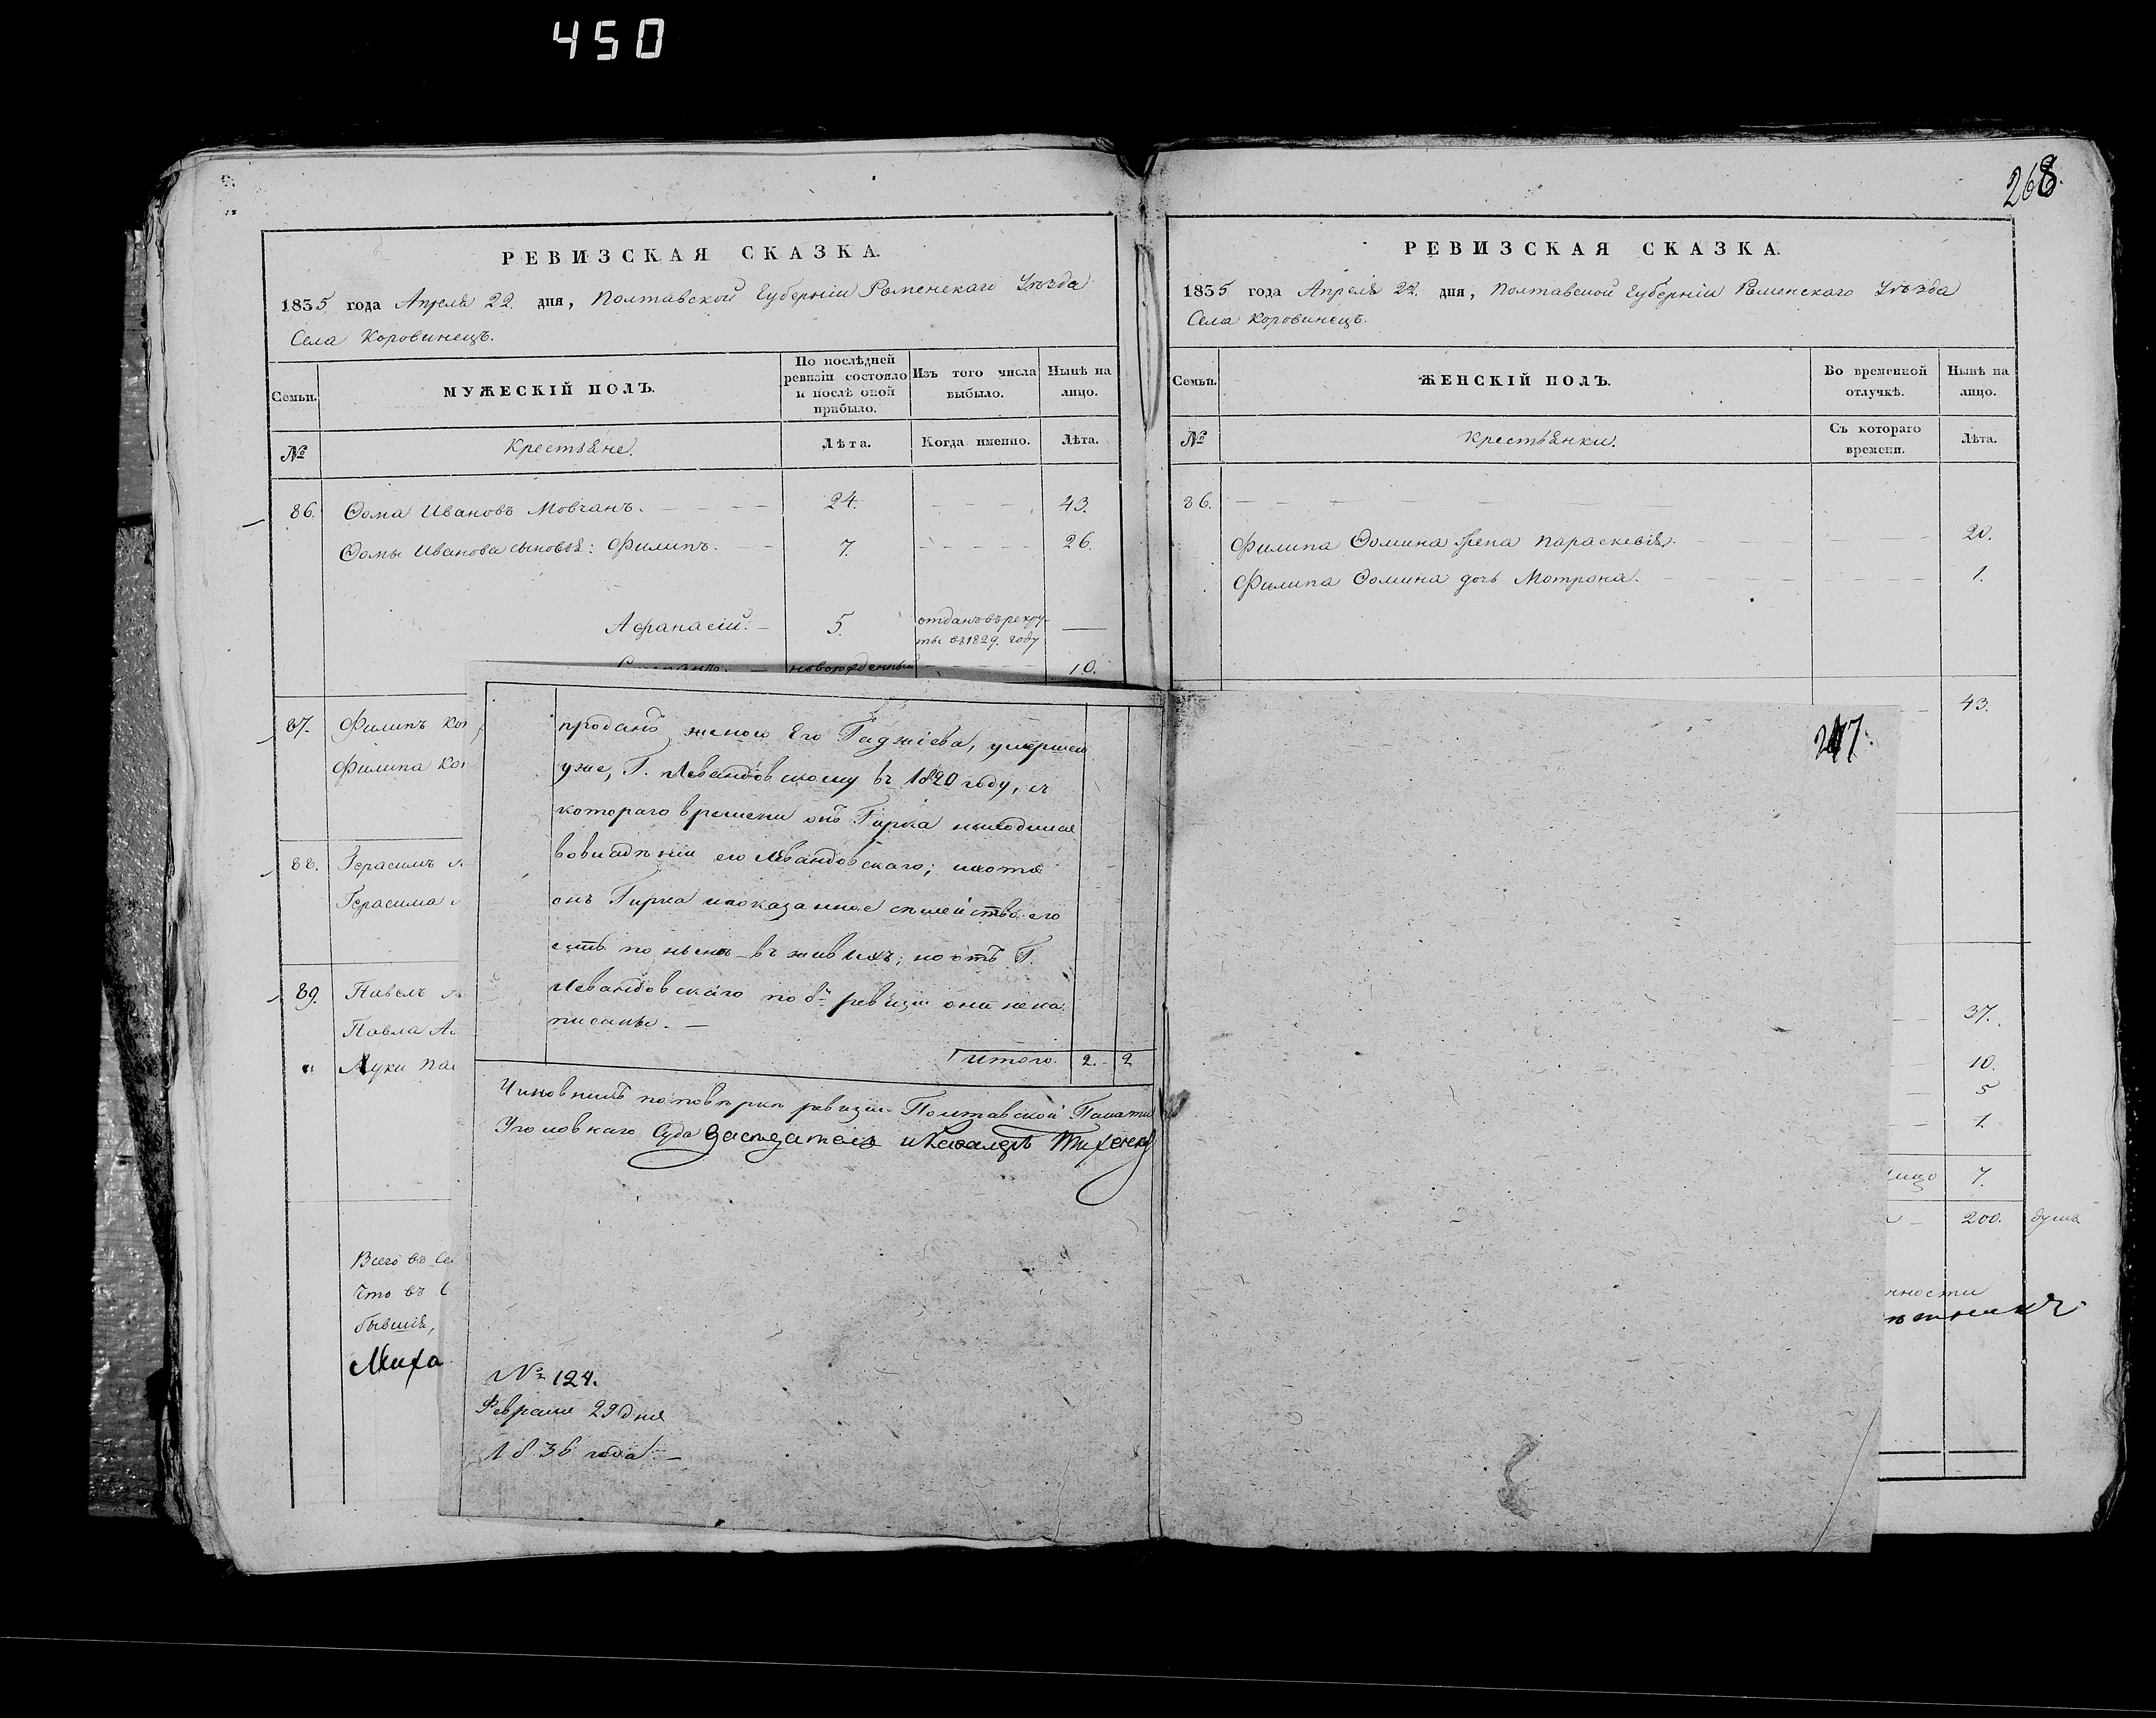 450
268.
РЕВИЗСКАЯ СКАЗКА.
1835 года Апреля 22 дня, Полтавской Губерніи Роменскаго Уѣзда
Села Коровинецъ.
Семьи.
МУЖЕСКІЙ ПОЛЪ.
По послѣдней ревизіи состояло и послѣ оной прибыло.
Изъ того числа выбыло.
Нынѣ на лицо.
№
Крестьяне.
Лѣта.
Когда именно.
Лѣта.
86. Ѳома Ивановъ Мовчанъ. 24. 43.
Ѳомы Иванова сыновья: Филипъ. 7. 26.
Афанасій. 5. отданъ въ рекру-
ты въ 1829. году
новорожденный 10.
87. Филипъ
Филипа
88. Герасимъ
Герасима
89. Павелъ
Павла
Луки
Всего въ
Что въ
бывшія,
Миха
РЕВИЗСКАЯ СКАЗКА.
1835 года Апреля 22. дня, Полтавской Губерніи Роменскаго Уѣзда
Села Коровинецъ.
Семьи.
ЖЕНСКІЙ ПОЛЪ.
Во временной отлучкѣ.
Нынѣ на лицо.
№
Крестьянки.
Съ котораго времени.
Лѣта.
86.
Филипа Ѳомина жена Параскевія. 20.
Филипа Ѳомина дочь Мотрона. 1.
43.
37.
10.
5
1.
лицо 7.
200. душъ
чности
проданъ женою Его Гаджіева, умершею
уже, Г. Левандовскому въ 1820 году, съ
котораго времени онъ Гирка находился
вовладѣніи его Левандовскаго; ихотя
онъ Гирка ипоказанное семейство его
есть по нынѣ въ живыхъ; но отъ Г.
Левандовскаго по 8й ревизіи они нена
писаны.
Итого. 2. 2
Чиновникъ поповѣркѣ ревизіи Полтавской Палаты
Уголовнаго Суда Засѣдатель и Кавалеръ
№ 124.
Февраля 29 дня
1836 года.
247.